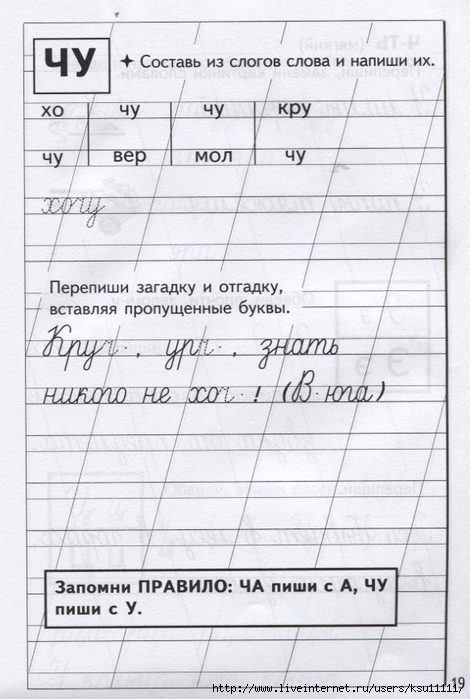 ЧУ
Составь из слогов слова и напиши их.
хо чу чу кру
чу вер мол чу
хочу
Перепиши загадку и отгадку,
вставляя пропущенные буквы.
Круч·, урч·, знать
никого не хоч·! (В·юга)
Запомни ПРАВИЛО: ЧА пиши с А, ЧУ
пиши с У.
19
http://www.liveinternet.ru/users/ksu11111/